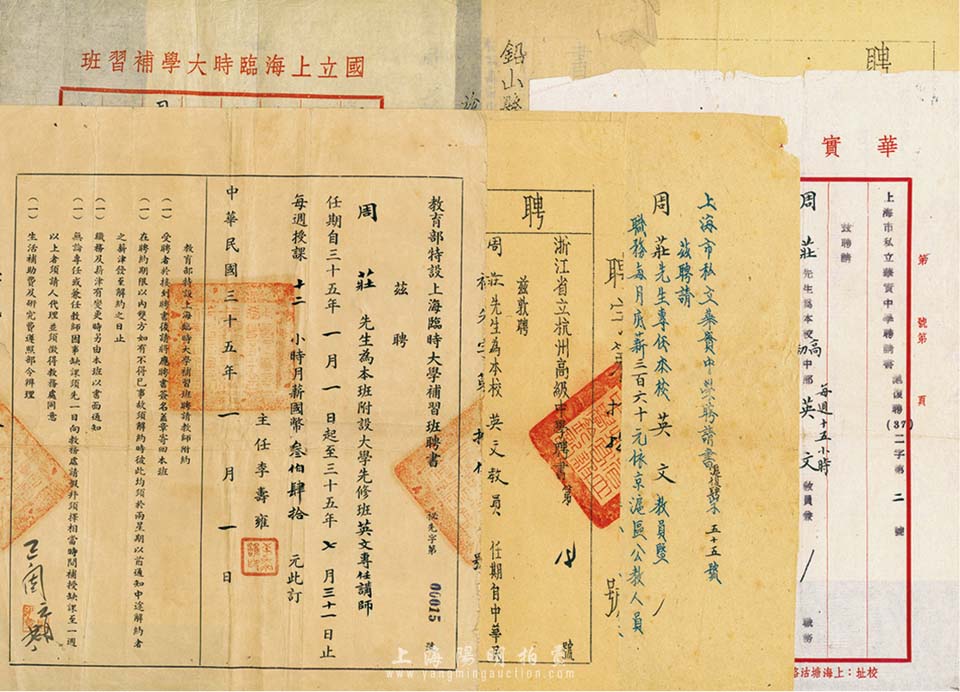 國立上海臨時大學補習班
鉛山縣
聘
華實
教育部特設上海臨時大學補習班聘書
秘先字第 00015 號
茲聘
周莊 先生為本班附設大學先修班英文專任講師
任期自三十五年一月一日起至三十五年七月三十一日止
每週授課十二小時月薪國幣叁伯肆拾元此訂
主任李壽雍
中華民國三十五年一月一日
教育部特設上海臨時大學補習班聘請教師附約
(一) 受聘者於接到聘書後請將應聘書簽名蓋章寄回本班
(一) 在聘約期限以內雙方如有不得已事故須解約時彼此均須於兩星期以前通知中途解約者
之薪津發至解約之日止
(一) 職務及薪津有變更時另由本班以書面通知
(一) 無論專任或兼任教師因事缺課須先一日向教務處請假并須擇相當時間補授缺課至一週
以上者須請人代理並須徵得教務處同意
(一) 生活補助費及研究費遵照部令辦理
聘
浙江省立杭州高級中學聘書
第 號
茲敦聘
周莊先生為本校英文教員 任期自中華民
上海市私立
中學聘請書
五十五號
茲聘請
周莊先生專任本校英文教員暨
職務每月底薪三百六十元依京滬區公教人員
第 號第 頁
上海市私立華實中學聘請書
(37)二字第二號
茲聘請
周莊先生為本校高初中部英文教員兼 職務
每週十五小時
校址:上海塘沽路
上海陽明拍賣
www.yangmingauction.com